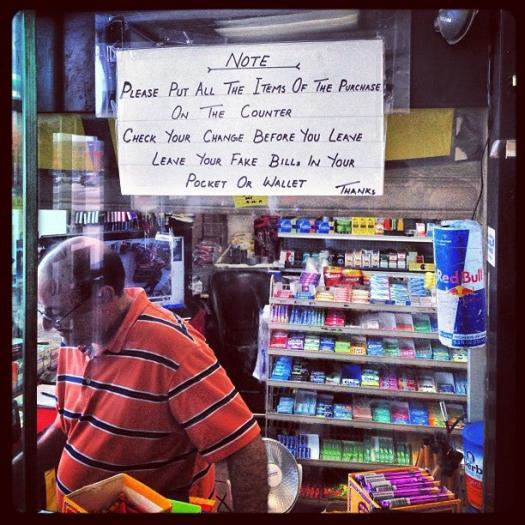 NOTE
PLEASE PUT ALL THE ITEMS OF THE PURCHASE
ON THE COUNTER
CHECK YOUR CHANGE BEFORE YOU LEAVE
LEAVE YOUR FAKE BILLS IN YOUR
POCKET OR WALLET THANKS
Red Bull